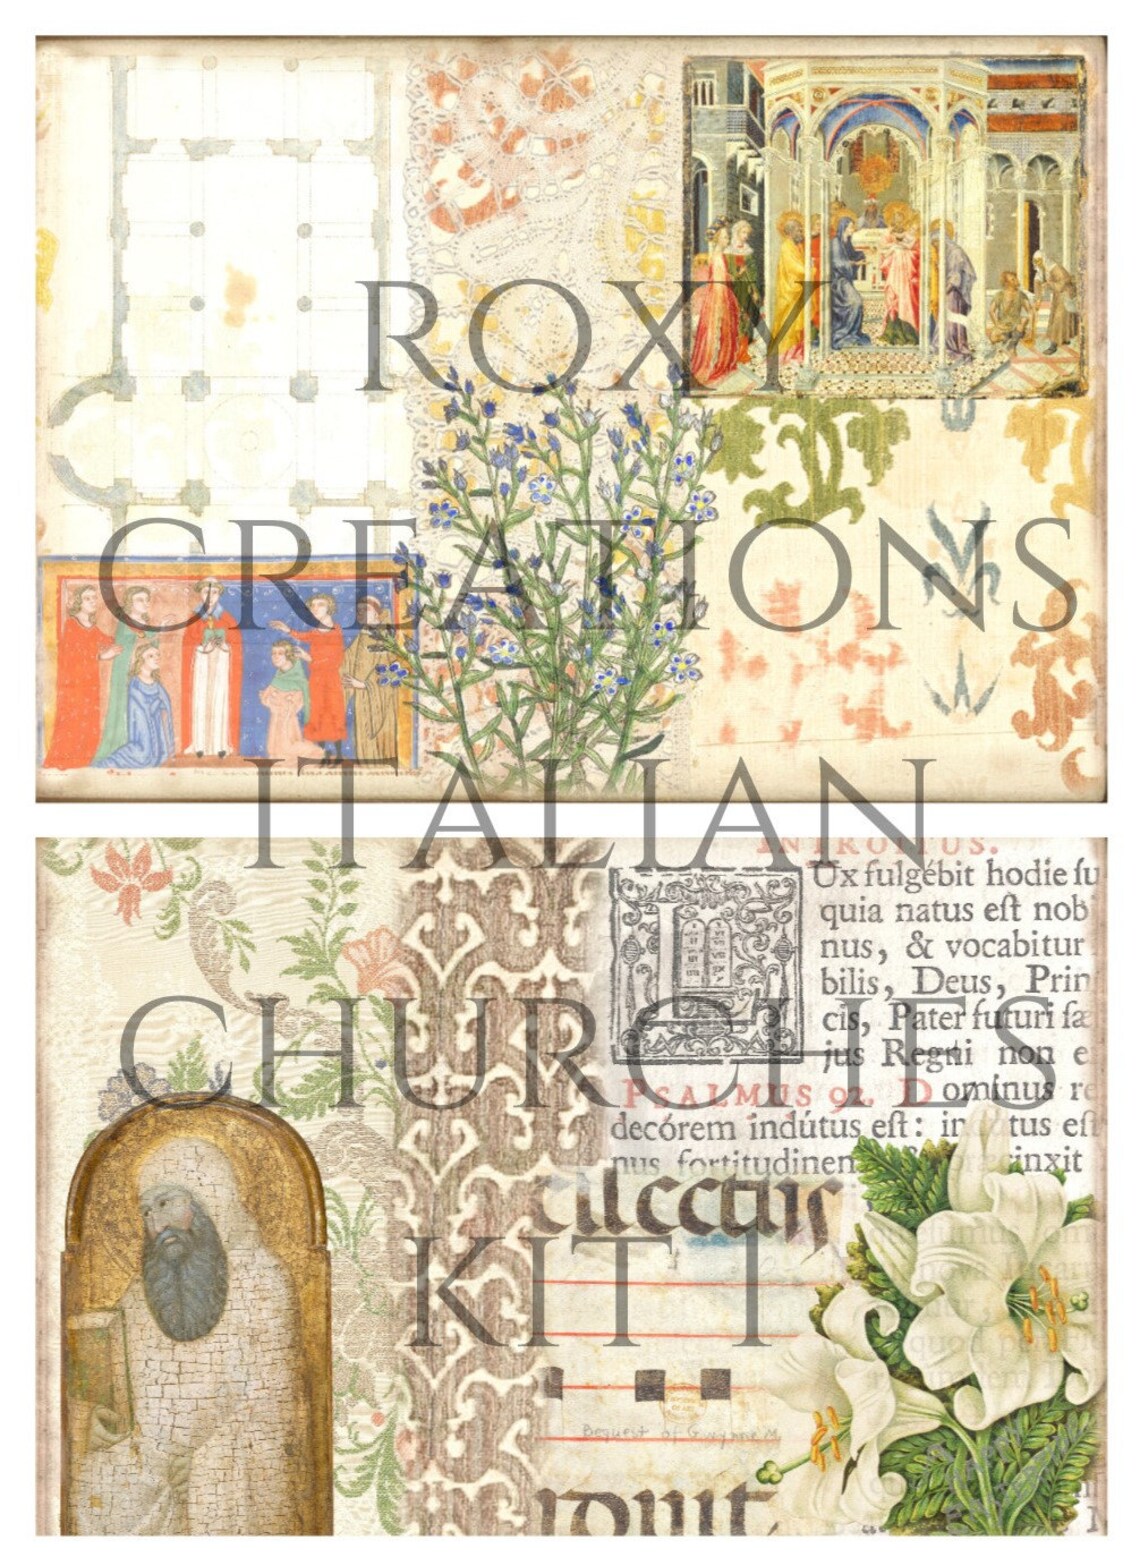 ROXY
CREATIONS
ITALIAN
CHURCHES
KIT 1
INTROITUS.
Ux fulgébit hodie ſu
quia natus eſt nob
nus, & vocabitur
bilis, Deus, Prin
cis, Pater futuri ſæ
jus Regni non e
PSALMUS 92. Dominus re
decórem indútus eſt: in tus eſt
nus fortitudinem cinxit
Bequest of Gwynne M.